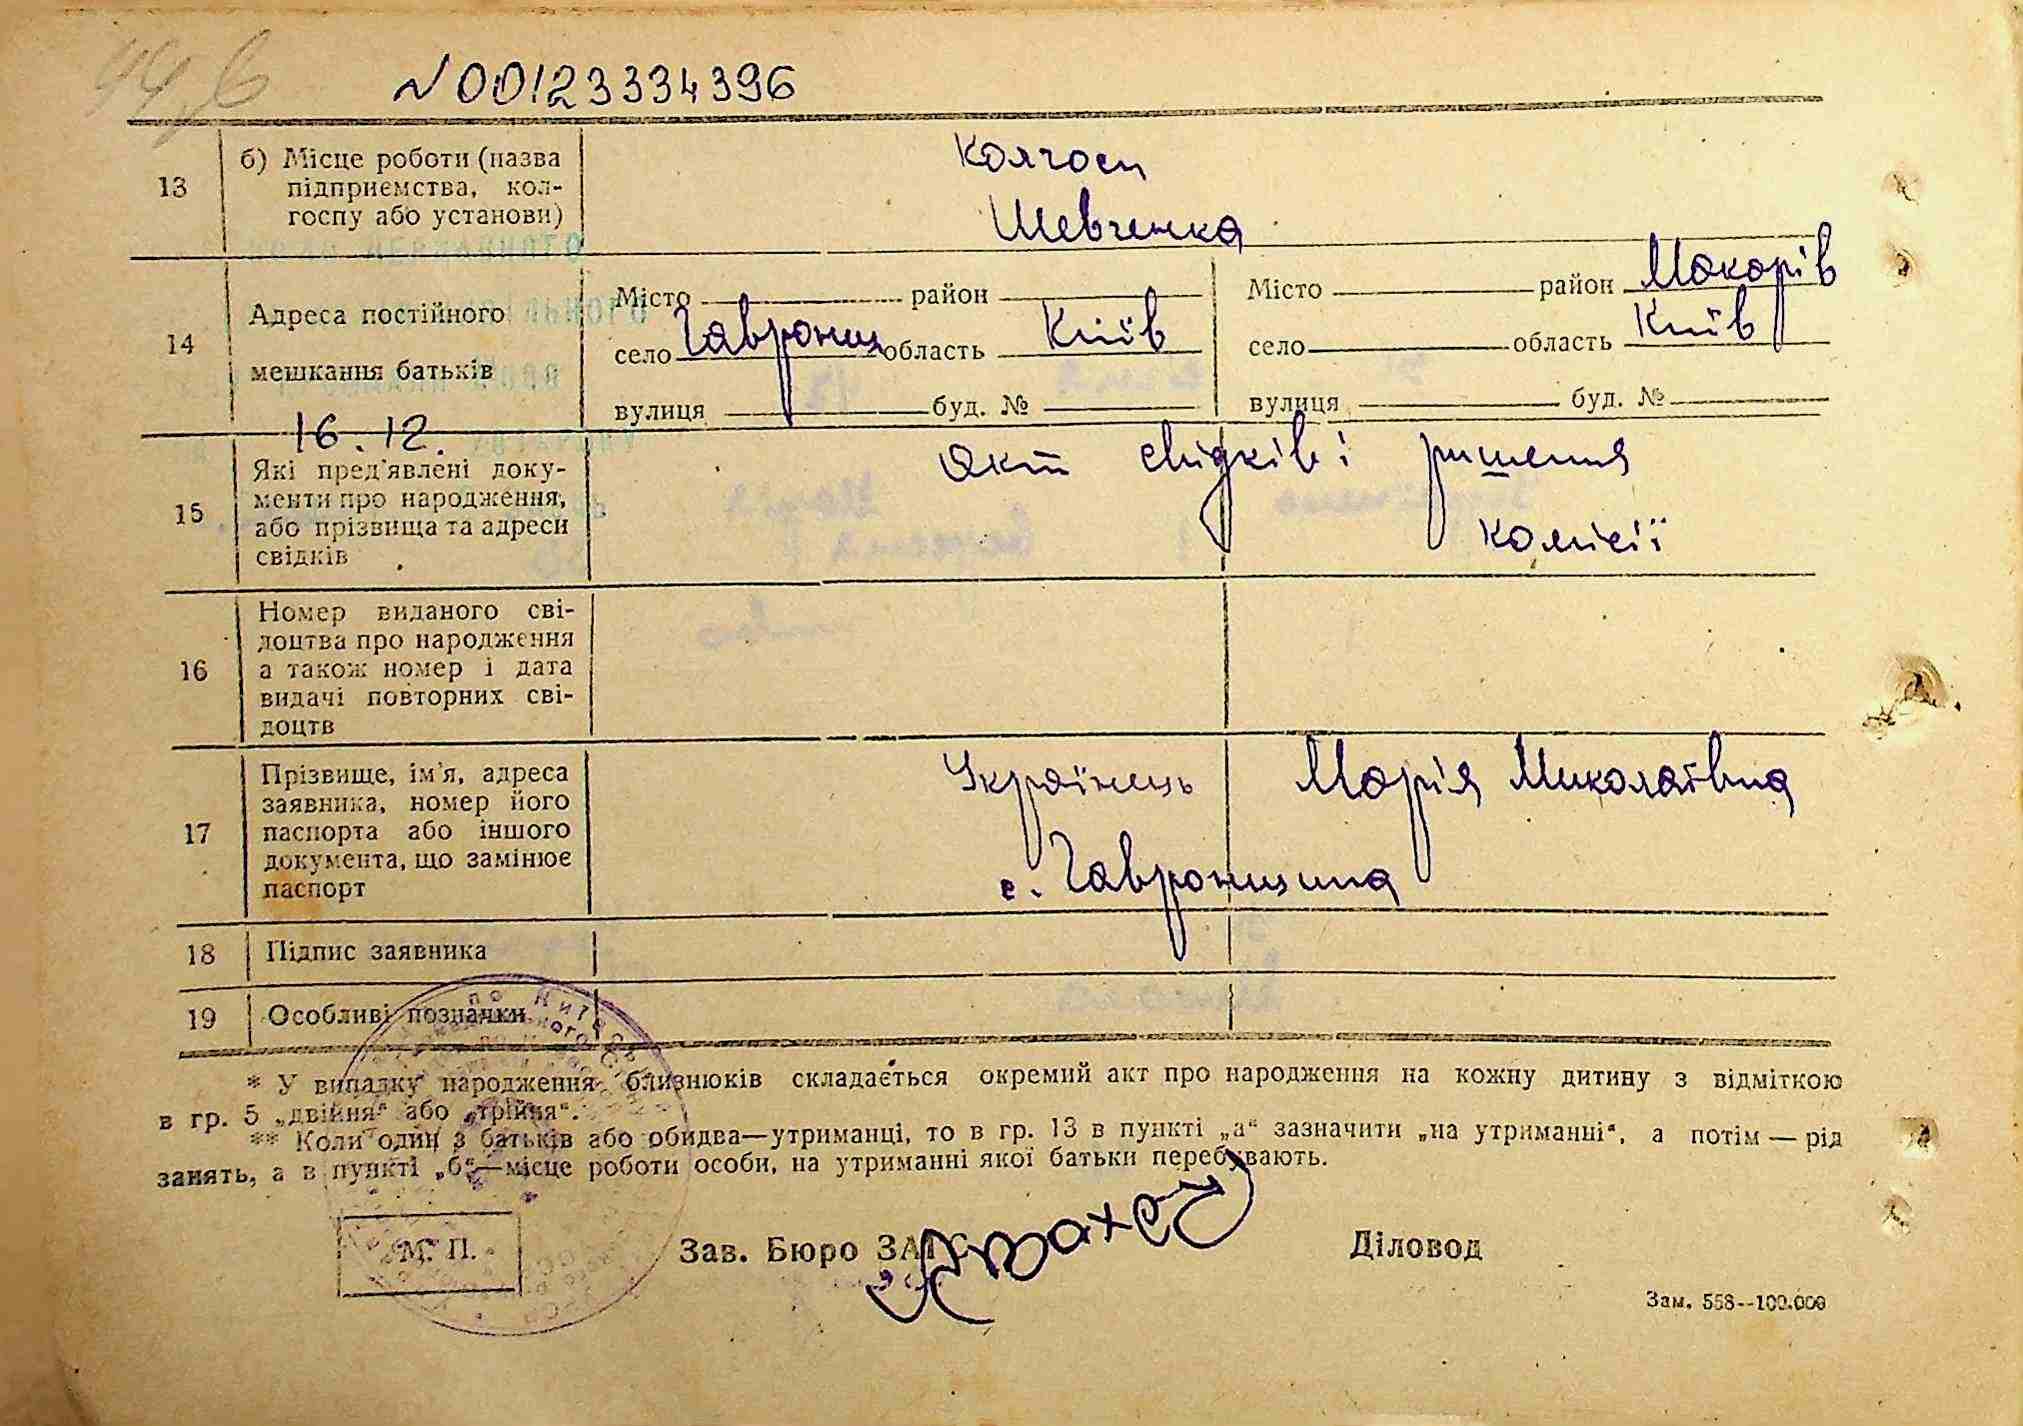 N00123334396
13 б) Місце роботи (назва
підприємства, кол-
госпу або установи)
Колгосп
Шевченка
14 Адреса постійного
мешкання батьків
Місто район
село Гаврониц область Київ
вулиця буд. №
Місто район Макарів
село область Київ
вулиця буд. №
16.12.
15 Які пред'явлені доку-
менти про народження,
або прізвища та адреси
свідків
Акт свідків і ришення
комісії
16 Номер виданого сві-
доцтва про народження
а також номер і дата
видачі повторних сві-
доцтв
17 Прізвище, ім'я, адреса
заявника, номер його
паспорта або іншого
документа, що замінює
паспорт
Українець Марія Миколаївна
с. Гавронщина
18 Підпис заявника
19 Особливі позначки
* У випадку народження близнюків складається окремий акт про народження на кожну дитину з відміткою
в гр. 5 „двійня“ або „трійня“.
** Коли один з батьків або обидва—утриманці, то в гр. 13 в пункті „а“ зазначити „на утриманні“, а потім — рід
занять, а в пункті „б“—місце роботи особи, на утриманні якої батьки перебувають.
М. П. Зав. Бюро ЗАГС Діловод
Зам. 558--100.000